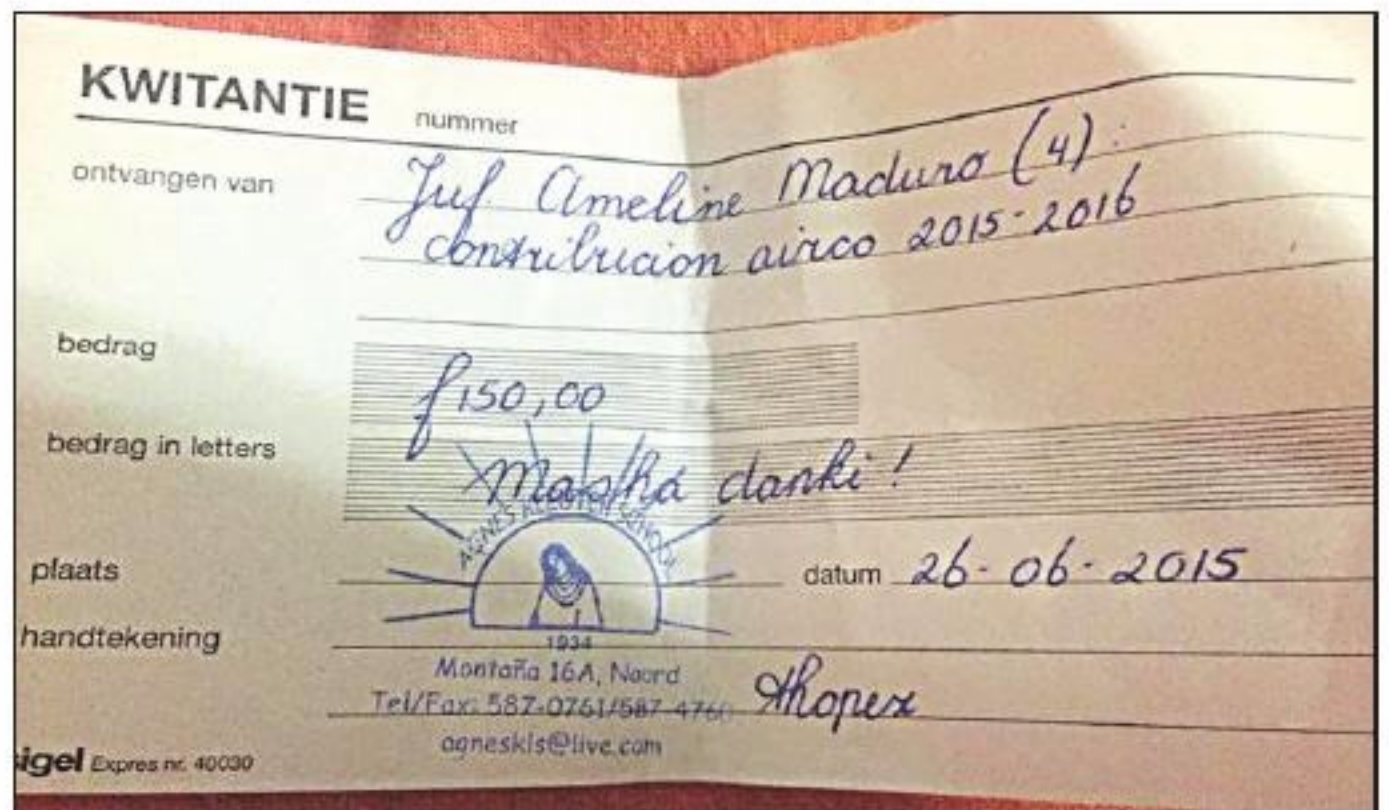 KWITANTIE nummer
ontvangen van Juf. Ameline Maduro (4):
contribucion airco 2015-2016
bedrag f 150,00
bedrag in letters Masha danki!
AGNES KLEUTER SCHOOL
plaats datum 26-06-2015
handtekening
1934
Montaña 16A, Noord
Tel/Fax: 587-0761/587-4760
agneskls@live.com
sigel Expres nr. 40030